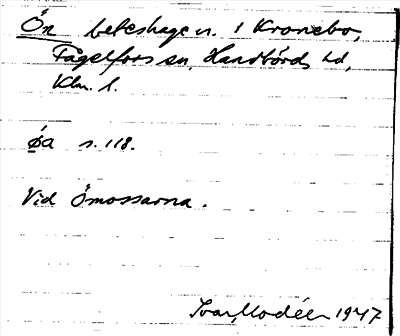 Ön beteshage n. i Kronebo,
Fågelfors sn, Handbörds hd,
Klm. l.
öa s. 118.
Vid Ömossarna.
Ivar Modéer 1947